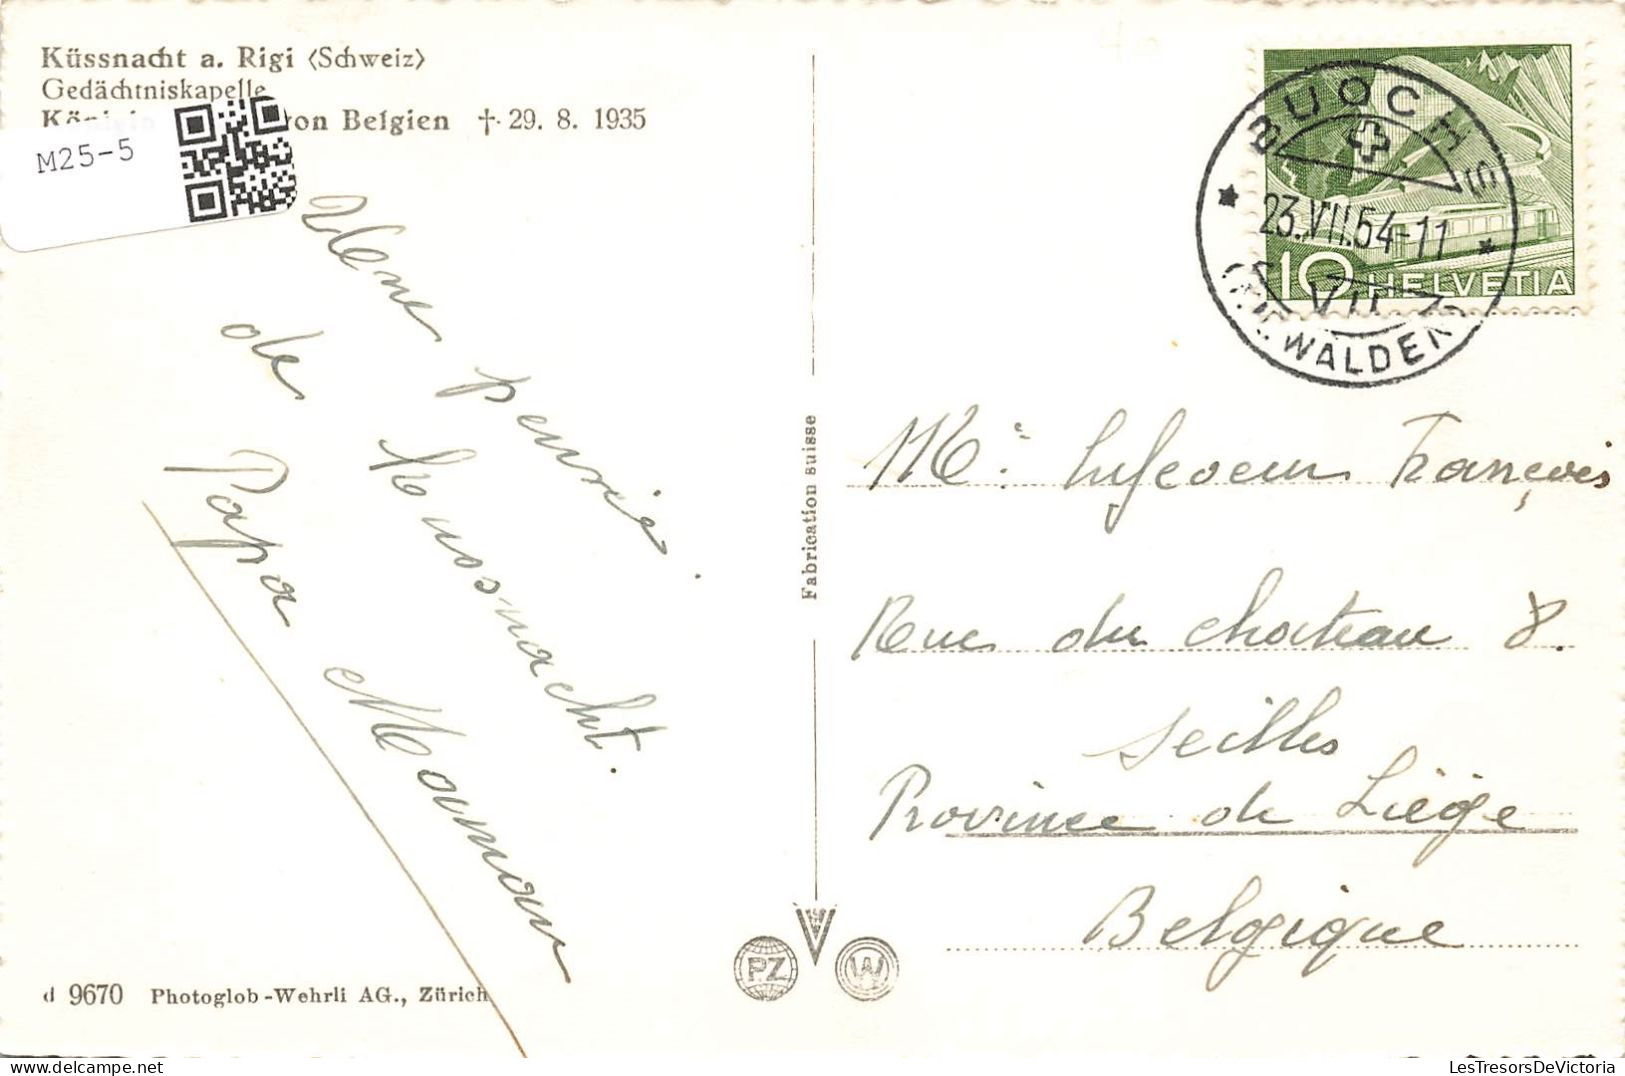 Küssnacht a. Rigi (Schweiz)
Gedächtniskapelle
von Belgien † 29. 8. 1935
M25-5
BUOCHS
23.VII.54-11
VII
WALDEN)
10 HELVETIA
pensée
de Kussnacht.
Papa Maman
Fabrication suisse
François
Rue du chateau 8.
Seilles
Province de Liège
Belgique
PZ
W
d 9670 Photoglob-Wehrli AG., Zürich
LesTresorsDeVictoria